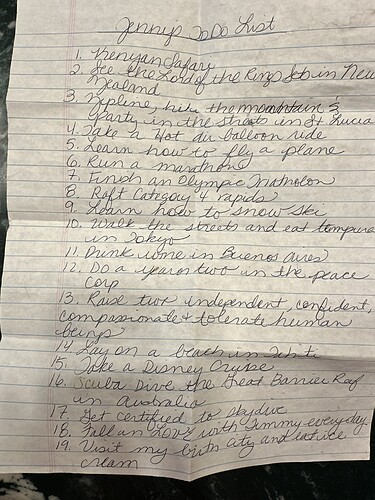 Jenny's To Do List
1. Kenyan Safari
2. See the Lord of the Rings Set in New
Zealand
3. Zipline, hike the mountain &
Party in the streets in St. Lucia
4. Take a Hot air balloon ride
5. Learn how to fly a plane
6. Run a marathon
7. Finish an Olympic Triathlon
8. Raft Category 4 rapids
9. Learn how to snow ski
10. Walk the streets and eat tempura
in Tokyo
11. Drink wine in Buenos Aires
12. Do a year or two in the peace
Corp
13. Raise two independent, confident,
compassionate & tolerate human
beings
14. Lay on a beach in Tahiti
15. Take a Disney Cruise
16. Scuba Dive the Great Barrier Reef
in Australia
17. Get certified to skydive
18. Fall in LOVE with Jimmy everyday
19. Visit my birth city and eat ice
cream